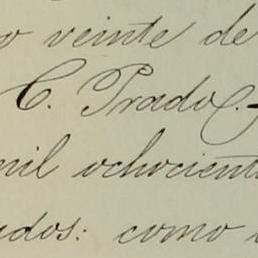 o veinte de
C. Prado.
mil ochocient
dos: como